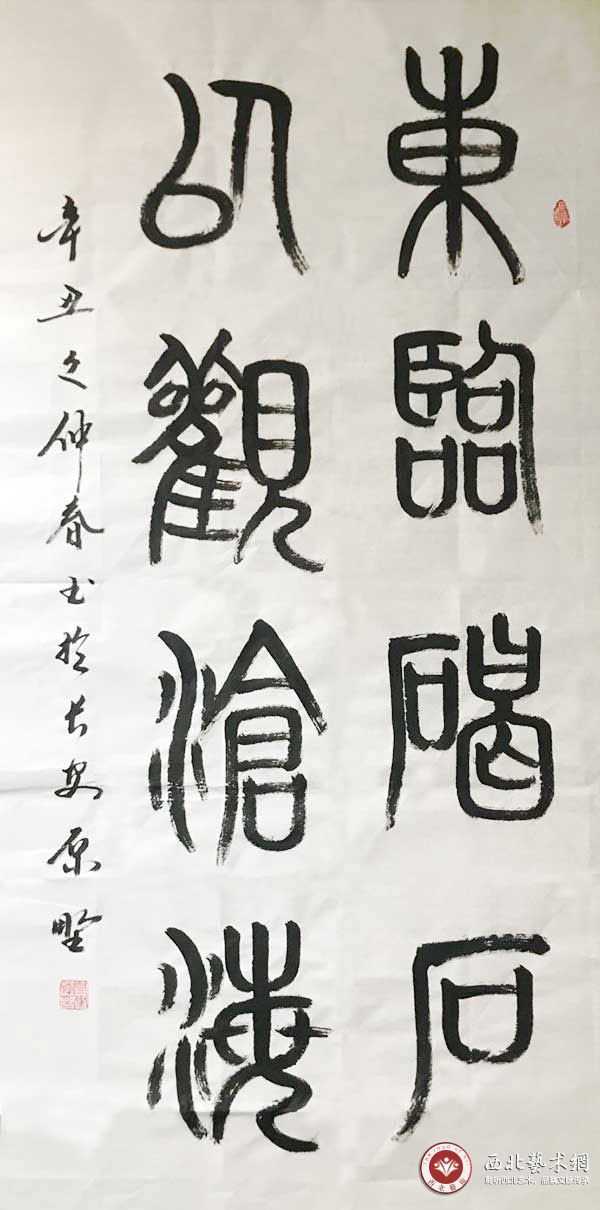 東臨碣石
以觀滄海
辛丑之仲春书於长安原
西北藝术網